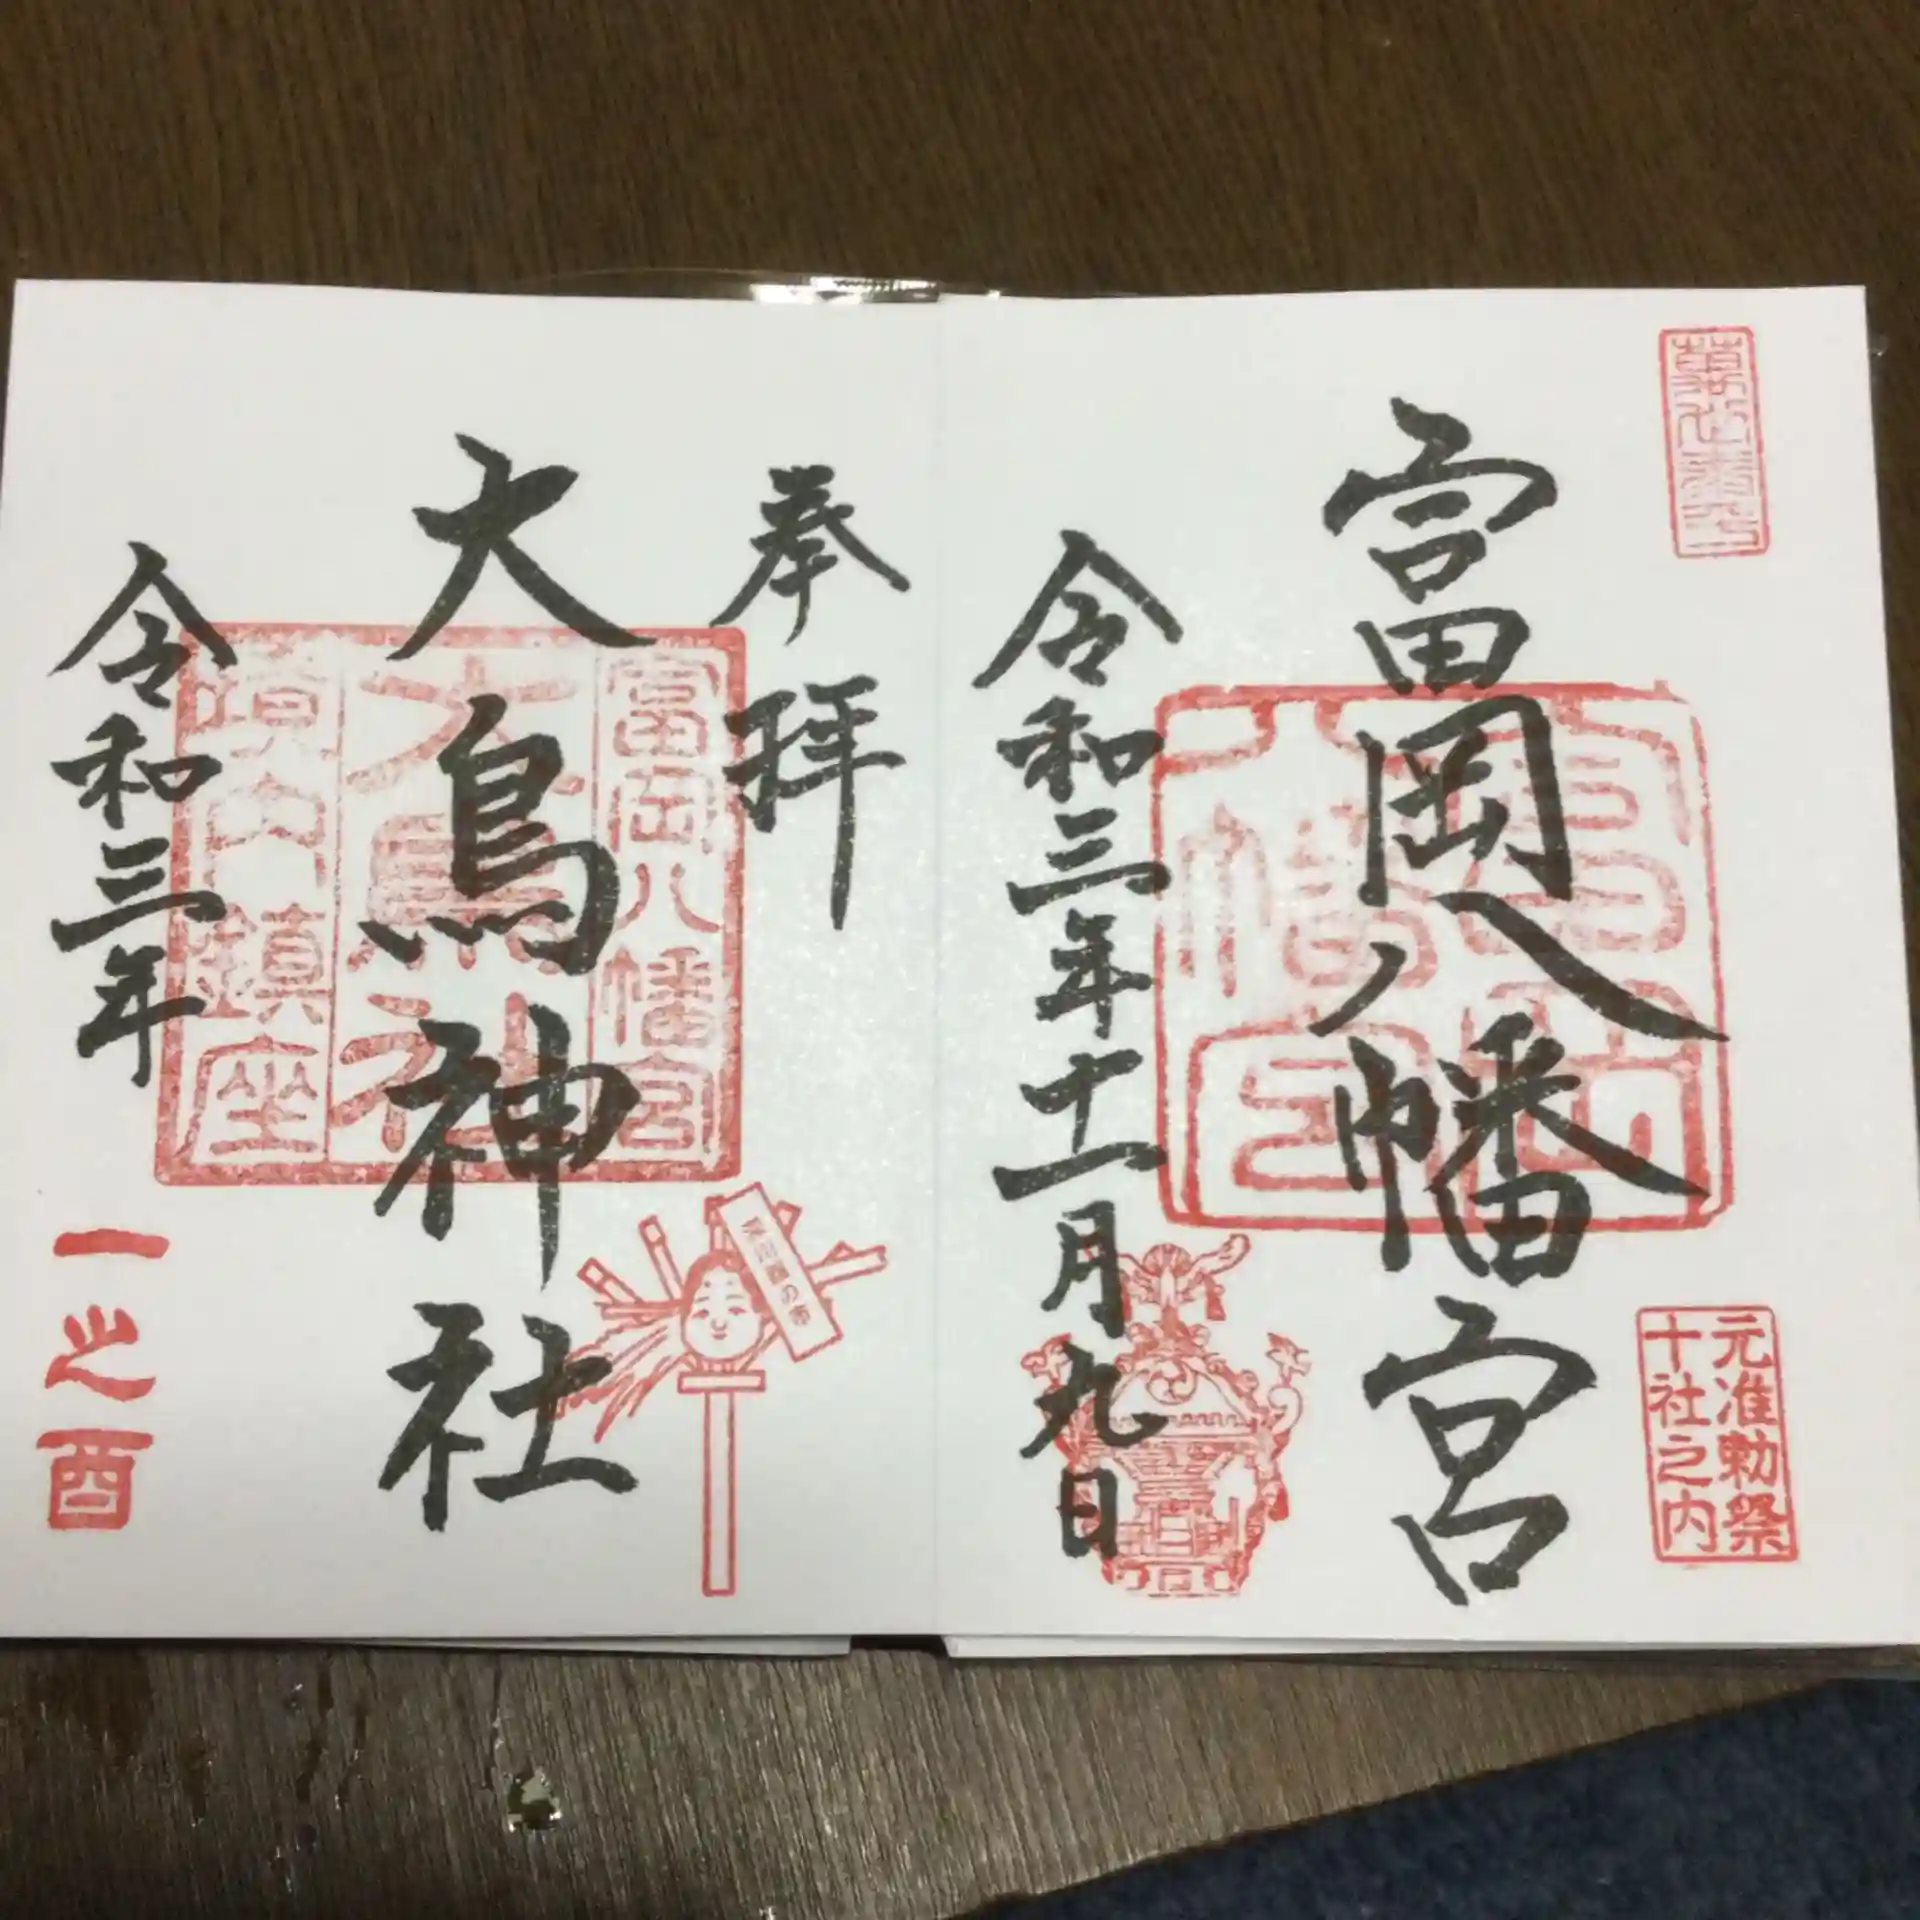 富岡八幡宮
元准勅祭
十社之内
富岡
八幡宮
令和三年十一月九日
奉拝
大鳥神社
富岡八幡宮
大鳥神社
境内鎮座
令和三年
一之酉